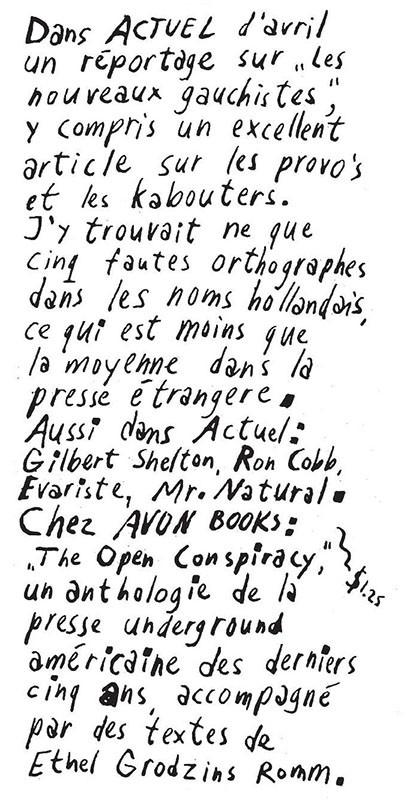 Dans ACTUEL d'avril
un réportage sur „Les
nouveaux gauchistes",
y compris un excellent
article sur les provo's
et les kabouters.
J'y trouvait ne que
cinq fautes orthographes
dans les noms hollandais,
ce qui est moins que
la moyenne dans la
presse étrangere.
Aussi dans Actuel:
Gilbert Shelton, Ron Cobb,
Evariste, Mr. Natural.
Chez AVON BOOKS:
„The Open Conspiracy," $1.25
un anthologie de la
presse underground
américaine des derniers
cinq ans, accompagné
par des textes de
Ethel Grodzins Romm.